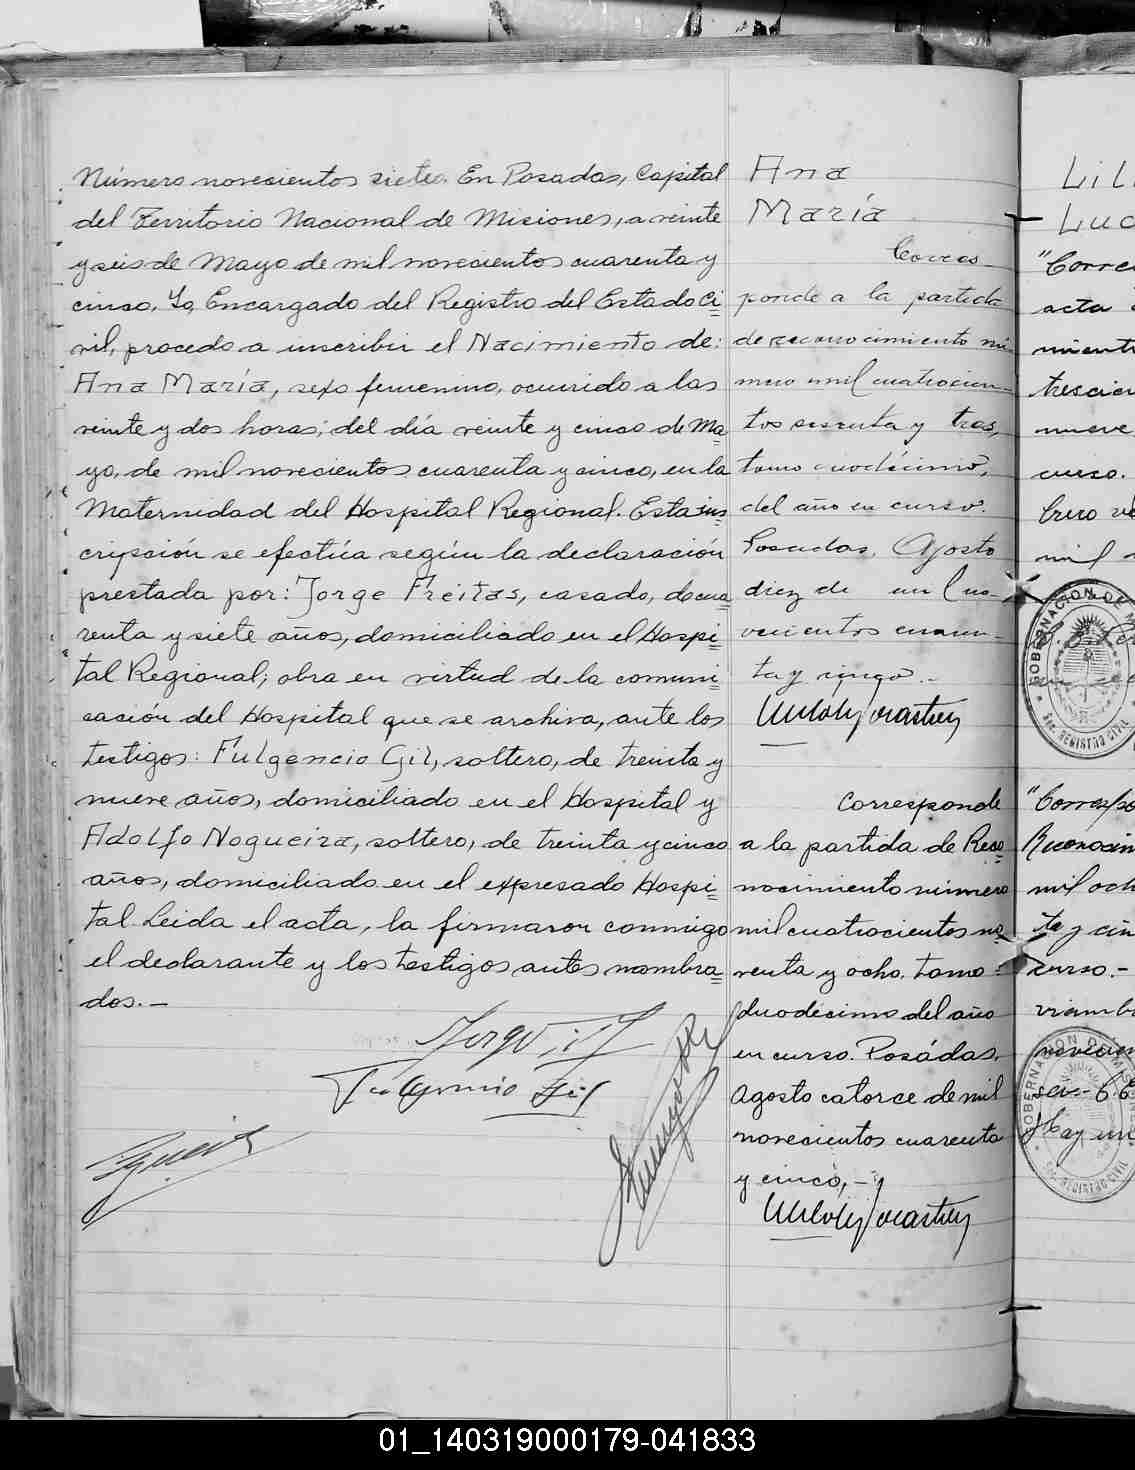 Número novecientos siete. En Posadas, Capital
del Territorio Nacional de Misiones, a veinte
y seis de Mayo de mil novecientos cuarenta y
cinco, Yo, Encargado del Registro del Estado Ci=
vil, procedo a inscribir el Nacimiento de:
Ana María, sexo femenino, ocurrido a las
veinte y dos horas; del día veinte y cinco de Ma=
yo, de mil novecientos cuarenta y cinco, en la
Maternidad del Hospital Regional. Esta ins=
cripción se efectúa según la declaración
prestada por: Jorge Freitas, casado, de cua=
renta y siete años, domiciliado en el Hospi=
tal Regional; obra en virtud de la comuni=
cación del Hospital que se archiva, ante los
testigos: Fulgencio Gil, soltero, de treinta y
nueve años, domiciliado en el Hospital y
Adolfo Nogueira, soltero, de treinta y cinco
años, domiciliado en el expresado Hospi=
tal. Leida el acta, la firmaron conmigo
el declarante y los testigos antes nombra=
dos.—
Fulgencio Gil
Ana
María
Corres
ponde a la partida
de reconocimiento nú
mero mil cuatrocien-
tos sesenta y tres,
tomo duodécimo,
del año en curso.
Posadas, Agosto
diez de mil no-
vecientos cuaren-
ta y cinco.-
Corresponde
a la partida de Reco=
nocimiento número
mil cuatrocientos no=
venta y ocho. tomo:
duodécimo del año
en curso. Posadas,
Agosto catorce de mil
novecientos cuarenta
y cinco,-
Lil
Luc
"Corre
acta
mient
trescien
nueve
curso.
brero ve
mil
GOBERNACION DE M
REGISTRO CIVIL
"Correspo
Reconocim
mil och
ta y cin
curso.-
viemb
novecien
GOBERNACION DE M
REGISTRO CIVIL
01_140319000179-041833